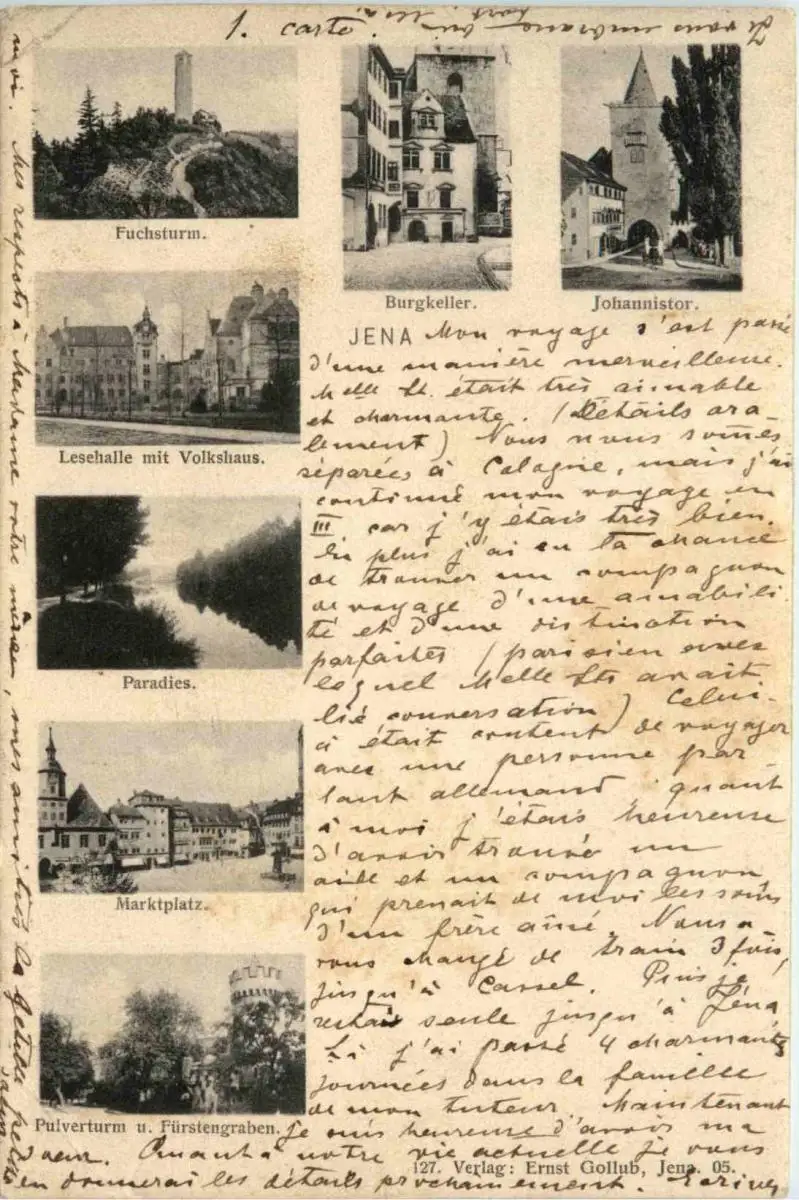 1. carte.
Je vous embrasse
Fuchsturm.
Burgkeller.
Johannistor.
Lesehalle mit Volkshaus.
Paradies.
Marktplatz.
Pulverturm u. Fürstengraben.
JENA Mon voyage s'est passé
d'une manière merveilleuse.
Melle St. était très aimable
et charmante. (Détails ora-
lement) Nous nous sommes
séparées à Cologne, mais j'ai
continué mon voyage en
III, car j'y étais très bien.
En plus j'ai eu la chance
de trouver un compagnon
de voyage d'une amabili-
té et d'une distinction
parfaites (parisien avec
lequel Melle Sts avait
lié conversation) Celui-
ci était content de voyager
avec une personne par
lant allemand, quant
à moi j'étais heureuse
d'avoir trouvé un
aide et un compagnon
qui prenait de moi les soins
d'un frère aîné. Nous a-
vons changé de train 3 fois,
jusqu'à Cassel. Puis je
restais seule jusqu'à Jéna
Là j'ai passé 4 charmantes
journées dans la famille
de mon tuteur. Maintenant
je suis heureuse d'avoir ma
sœur. Quant à notre vie actuelle je vous
en donnerai les détails prochainement.
127. Verlag: Ernst Gollub, Jena. 05.
moi. Mes respects à Madame votre mère, mes amitiés à la